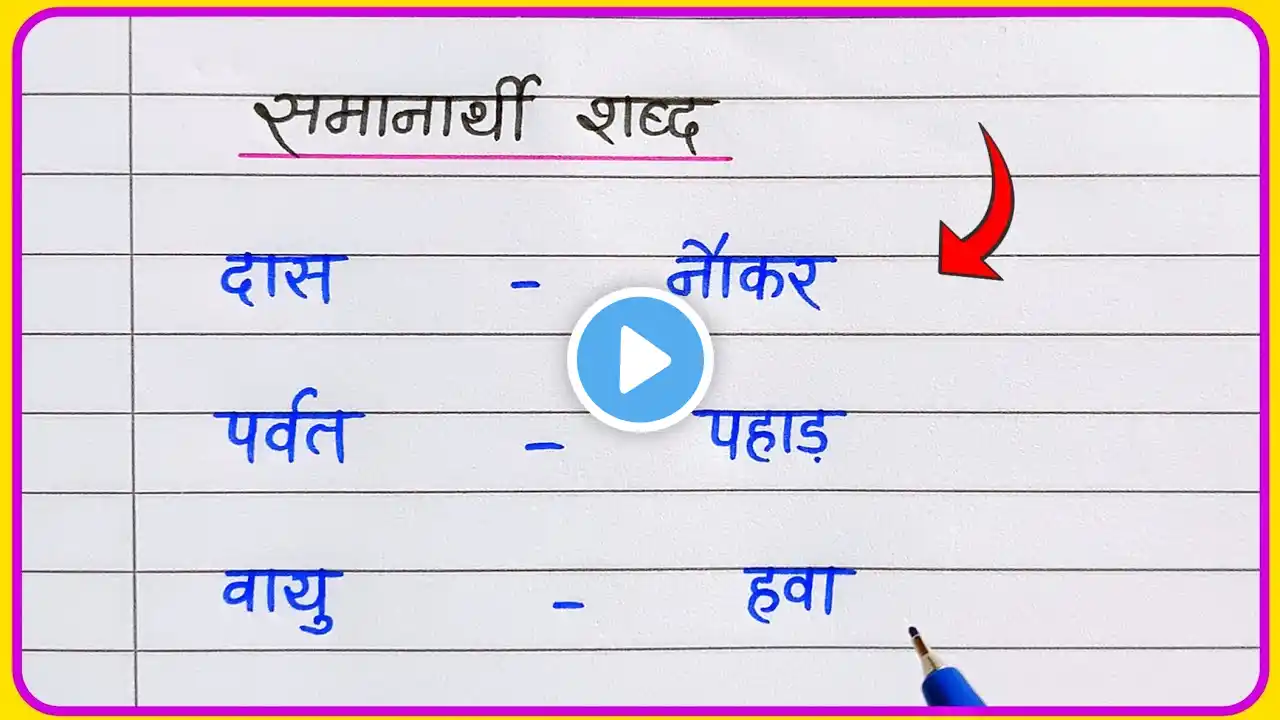 समानार्थी शब्द
दास - नौकर
पर्वत - पहाड़
वायु - हवा